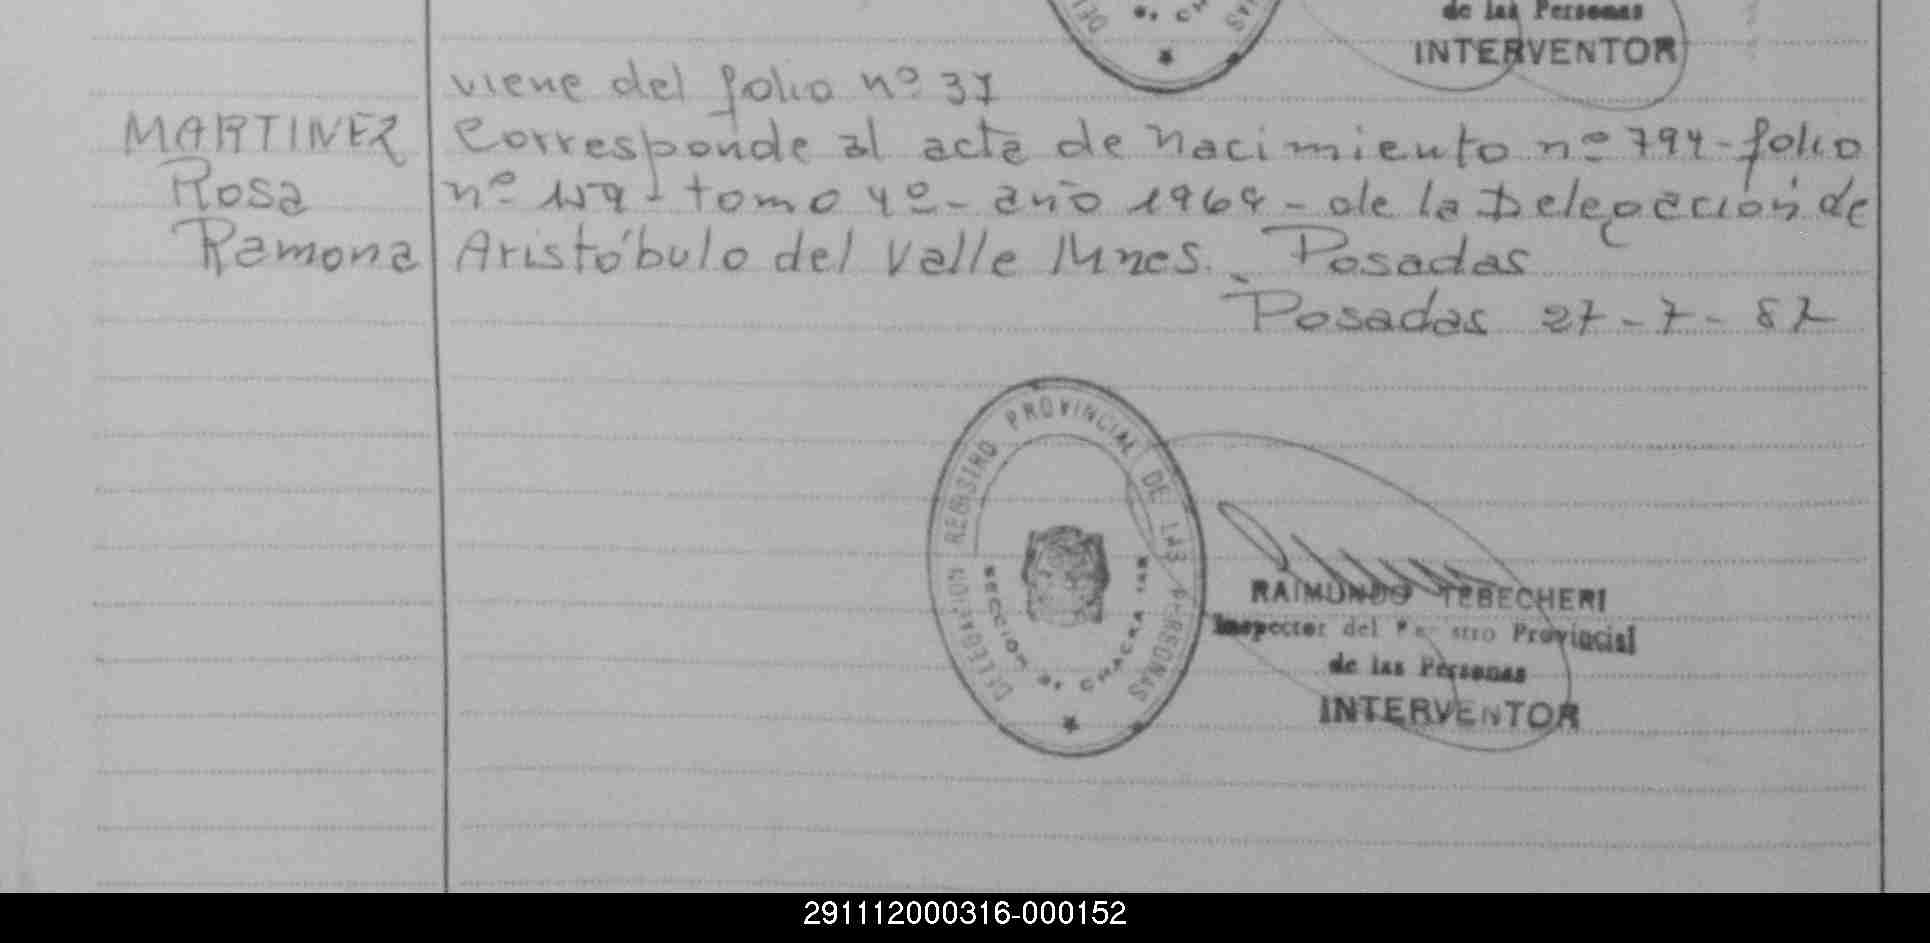 de las Personas
INTERVENTOR
viene del folio nº 37
MARTINEZ
Rosa
Ramona
Corresponde al acta de nacimiento nº 794 - folio
nº 159 - tomo 4º - año 1964 - de la Delegación de
Aristóbulo del Valle Mnes. Posadas
Posadas 27-7-87
DELEGACION REGISTRO PROVINCIAL DE LAS PERSONAS
SECCION 8ª CHACRA
RAIMUNDO TEBECHERI
Inspector del Registro Provincial
de las Personas
INTERVENTOR
291112000316-000152